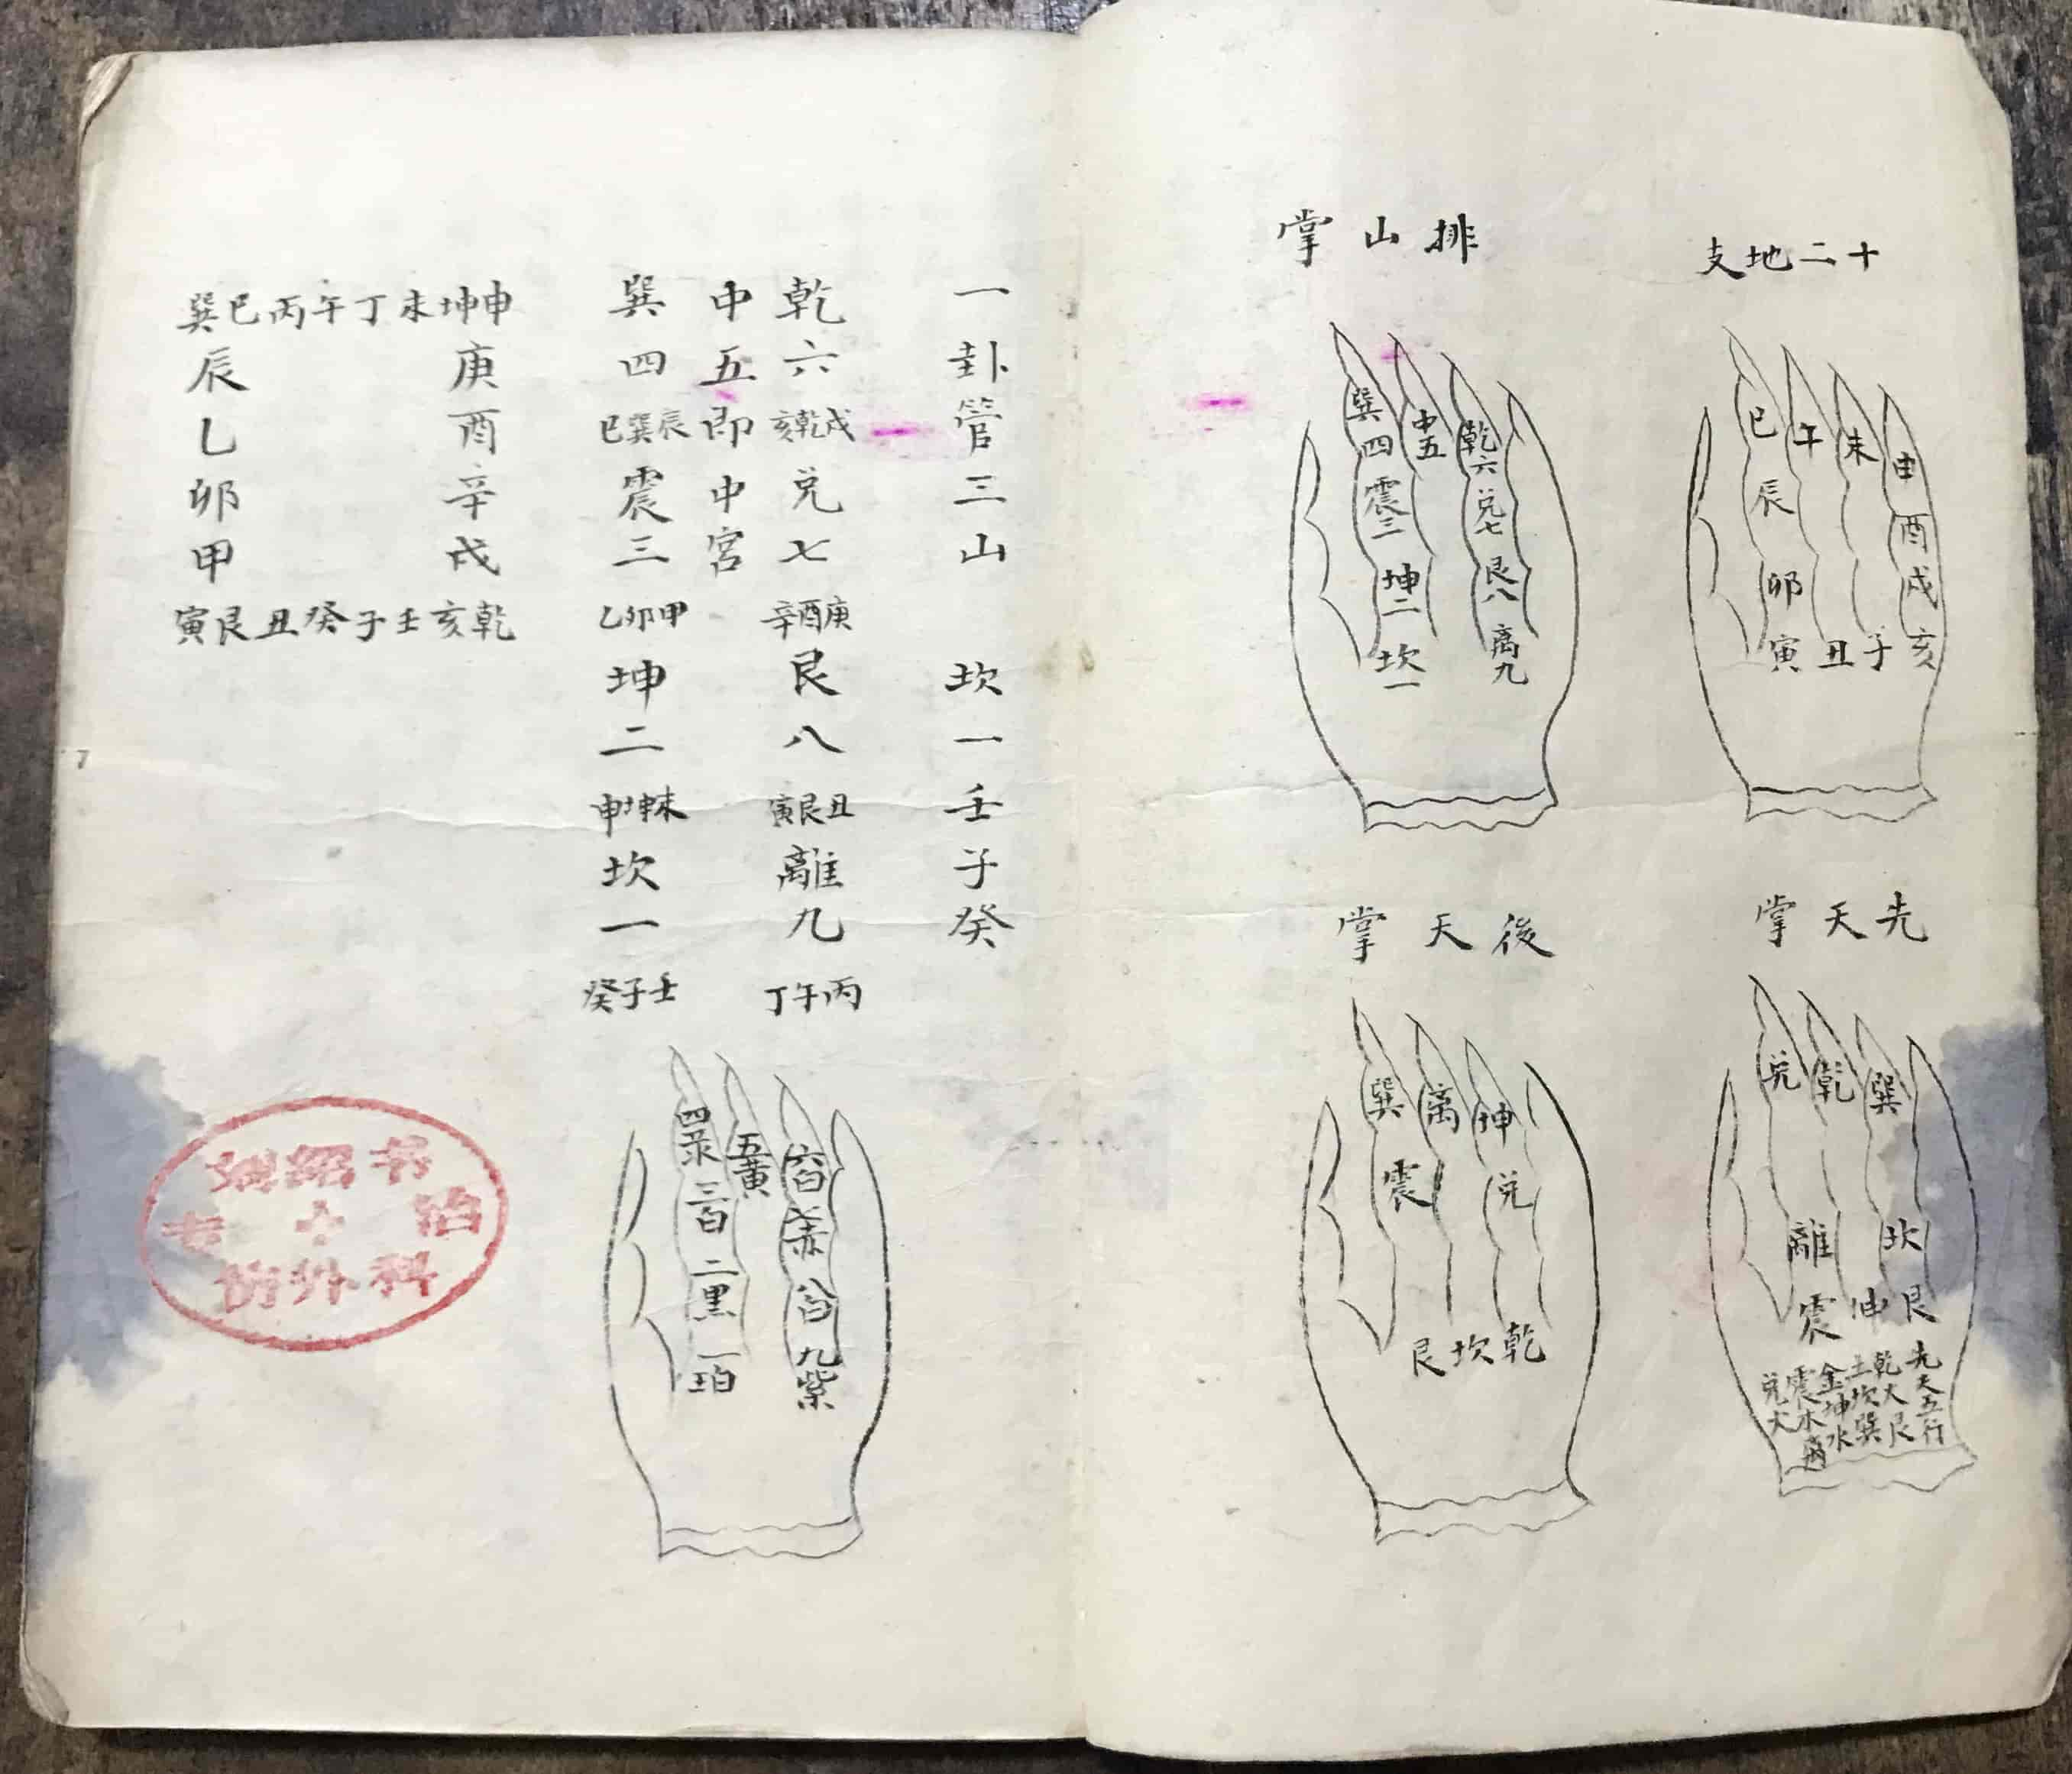 十二地支
巳午未申
辰酉
卯戌
寅丑子亥
排山掌
巽四
中五
乾六
震三
兑七
坤二
艮八
坎一
離九
先天掌
兑乾巽
離坎
震坤艮
先天五行
乾大艮
土坎巽
金坤水
震木
後天掌
巽离坤
震兑
艮坎乾
一卦管三山 坎一壬子癸
乾六戌乾亥兑七庚酉辛艮八丑艮寅離九丙午丁
中五即中宮
巽四辰巽巳震三甲卯乙坤二未坤申坎一壬子癸
巽巳丙午丁未坤申
辰庚
乙酉
卯辛
甲戌
寅艮丑癸子壬亥乾
四录
五黄
六白
三百
七赤
二黑
八白
一白
九紫
治
外科